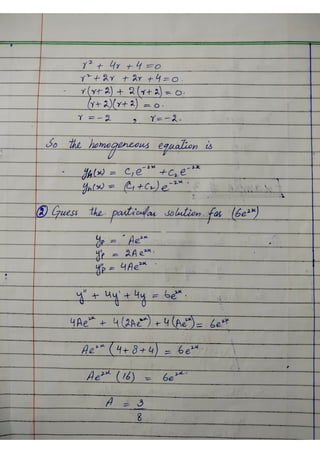 r² + 4r + 4 = 0
r² + 2r + 2r + 4 = 0.
r(r+2) + 2(r+2) = 0.
(r+2)(r+2) = 0.
r = -2 , r = -2.
So the homogeneous equation is
yh(x) = C₁e⁻²ˣ + C₂e⁻²ˣ
yh(x) = (C₁+C₂)e⁻²ˣ.
② Guess the particular solution for (6e²ˣ)
yp = Ae²ˣ
y'p = 2Ae²ˣ
y"p = 4Ae²ˣ
y" + 4y' + 4y = 6e²ˣ.
4Ae²ˣ + 4(2Ae²ˣ) + 4(Ae²ˣ) = 6e²ˣ
Ae²ˣ (4+8+4) = 6e²ˣ
Ae²ˣ (16) = 6e²ˣ.
A = 3
8